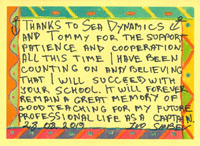 THANKS TO SEA DYNAMICS
AND TOMMY FOR THE SUPPORT
PATIENCE AND COOPERATION
ALL THIS TIME I HAVE BEEN
COUNTING ON AND BELIEVING
THAT I WILL SUCCEED WITH
YOUR SCHOOL. IT WILL FOREVER
REMAIN A GREAT MEMORY OF
GOOD TEACHING FOR MY FUTURE
PROFESSIONAL LIFE AS A CAPTAIN.
23.08.2019